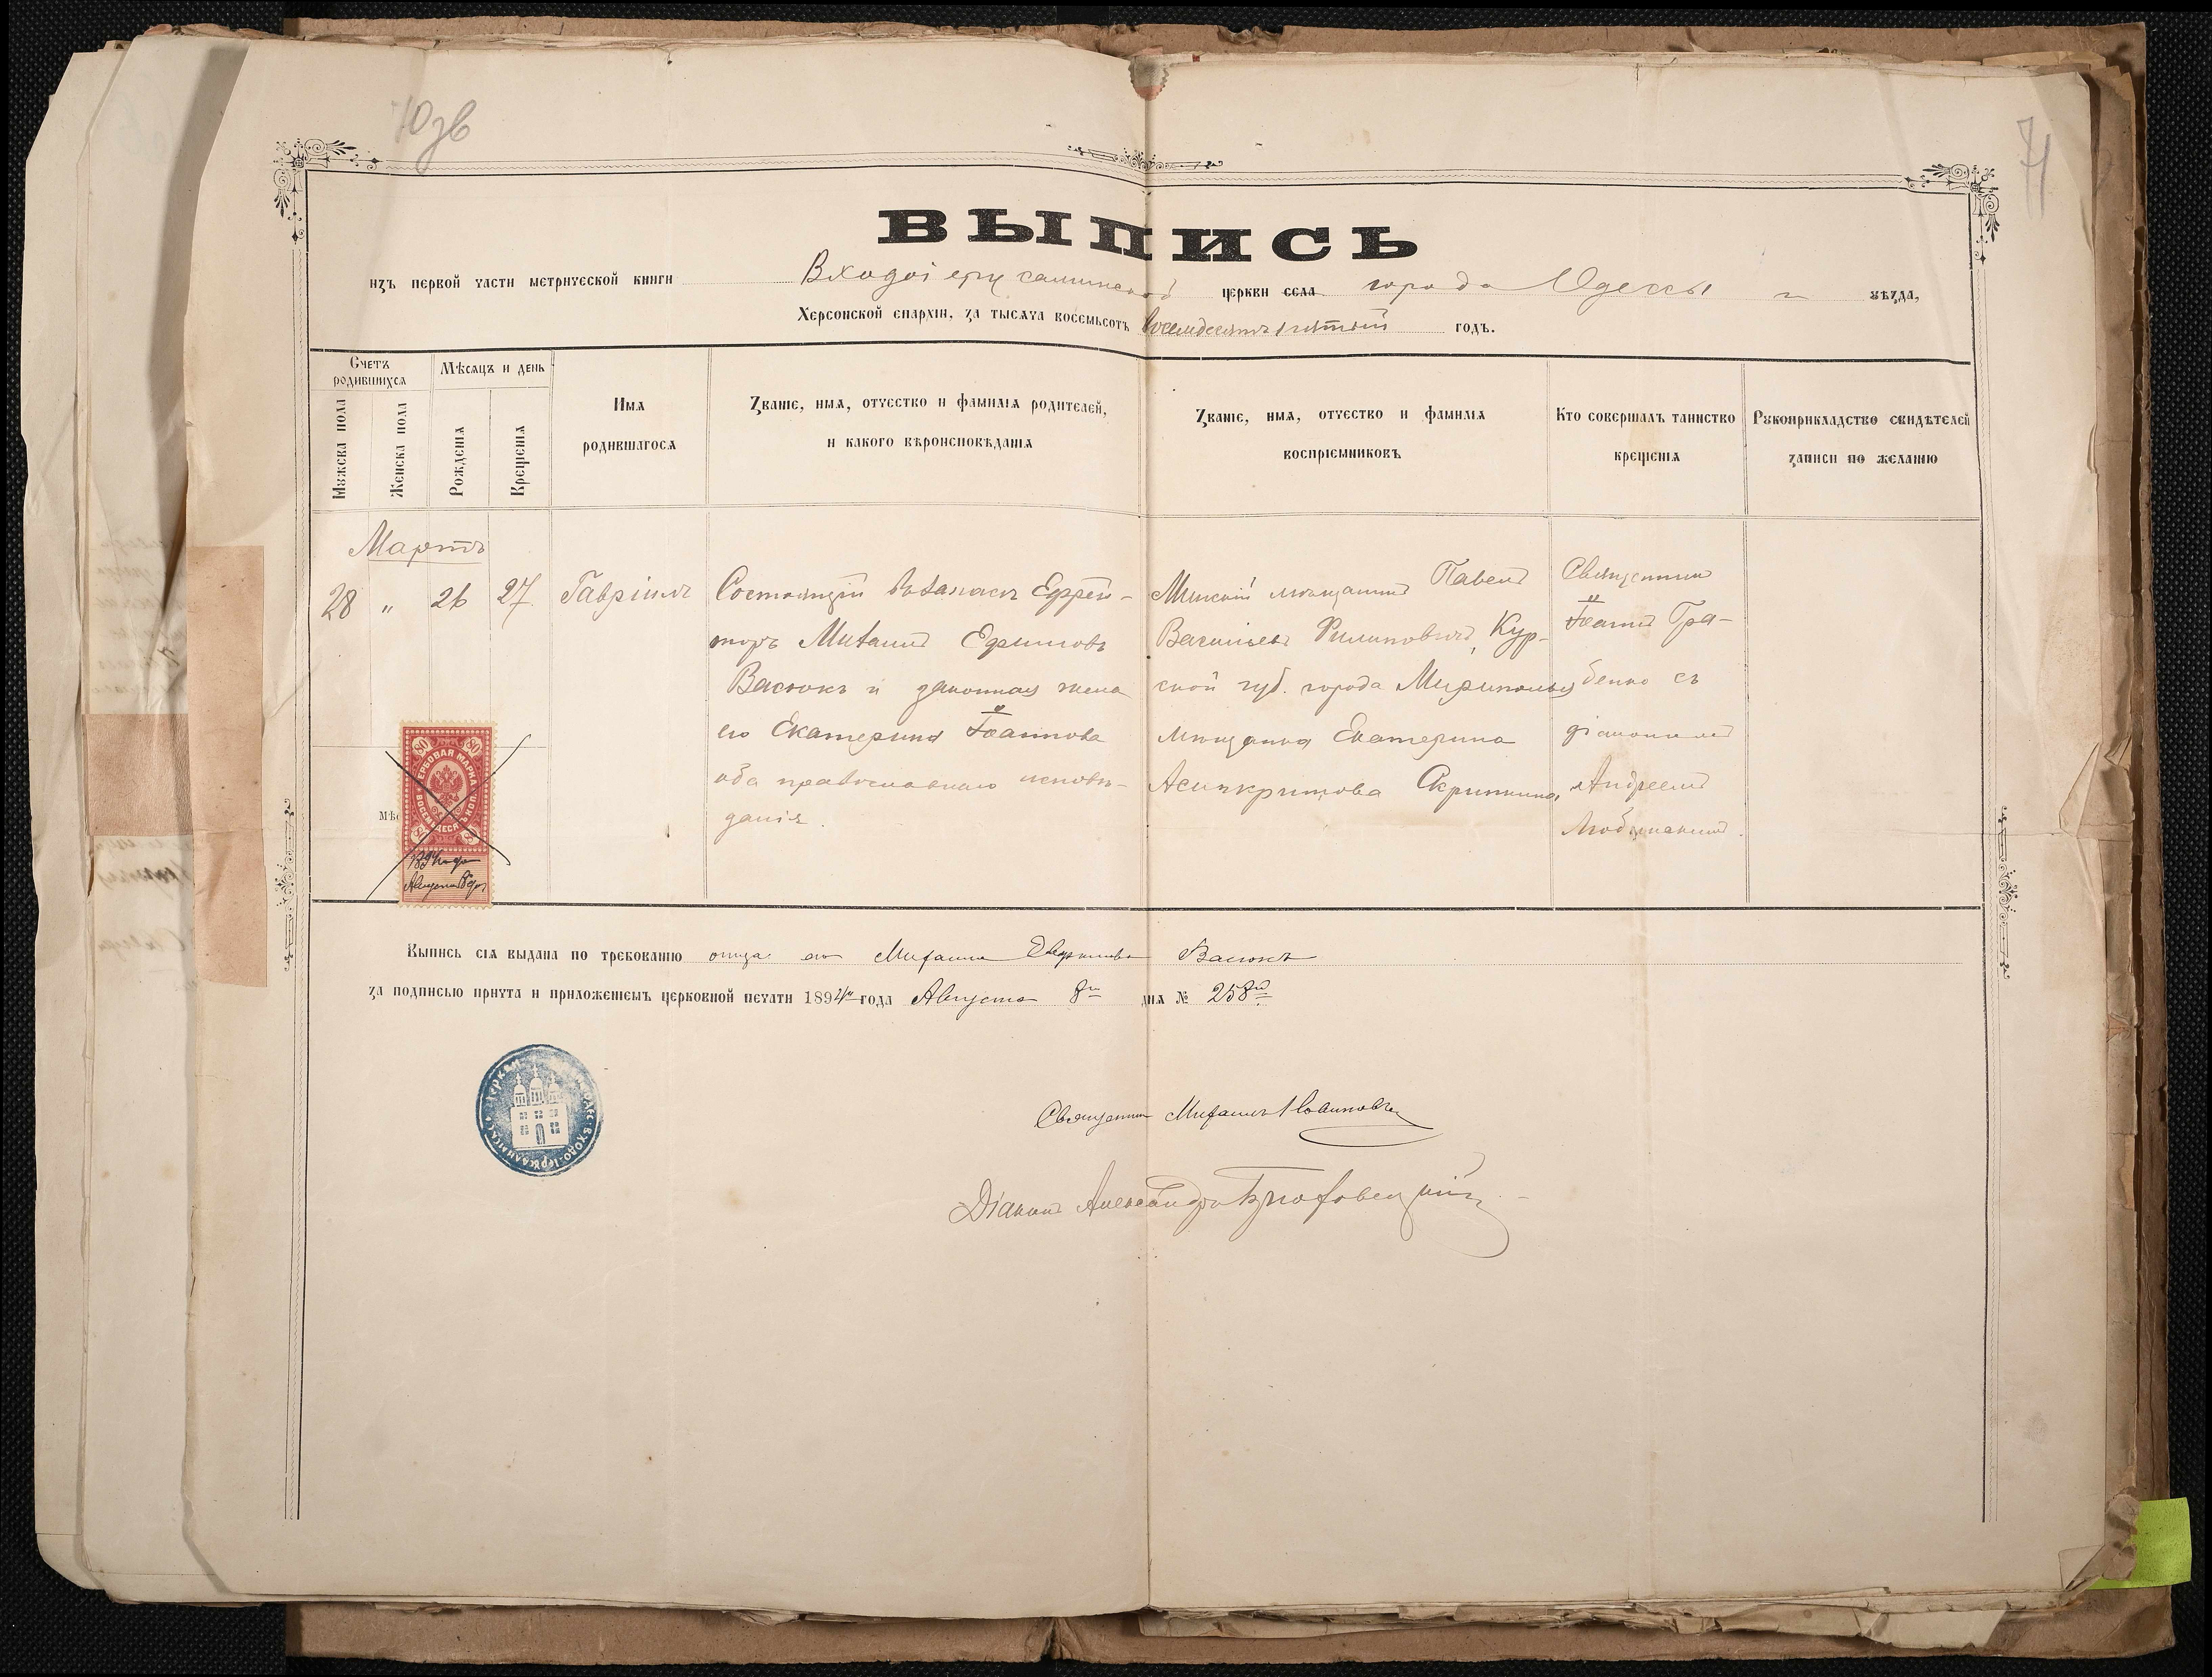 70зв
71
ВЫПИСЬ
изъ первой части метрической книги Входоіерусалимской церкви села города Одессы " уѣзда,
Херсонской епархіи, за тысяча восемьсотъ восемдесятъ пятый годъ.
Счетъ родившихся
Мужеска пола
Женска пола
Мѣсяцъ и день
Рожденія
Крещенія
Имя
родившагося
Званіе, имя, отчество и фамилія родителей,
и какого вѣроисповѣданія
Званіе, имя, отчество и фамилія
воспріемниковъ
Кто совершалъ таинство
крещенія
Рукоприкладство свидѣтелей
записи по желанію
Мартъ
28 " 26 27 Гавріилъ
Состоящій въ запасѣ Ефрей-
торъ Михаилъ Ефимовъ
Васюкъ и законная жена
его Екатерина Іоаннова
оба православнаго исповѣ-
данія.
Минскій мѣщанинъ Павелъ
Васильевъ Филиповичъ, Кур-
ской губ. города Мирополья
мѣщанка Екатерина
Асигкритова Скрипкина,
Священник
Іоаннъ Гра-
бенко съ
діакономъ
Андреемъ
ГЕРБОВАЯ МАРКА
80 80
ВОСЕМЬДЕСЯТЪ КОП.
1894 года
Августа 8 дня
Мѣс
Выпись сія выдана по требованію отца его Михаила Васюка
за подписью причта и приложеніемъ церковной печати 1894 года Августа 8 дня № 258
ЦЕРКВИ ВХОДО-ІЕРУСАЛИМСКОЙ
Священник Михаилъ
Діаконъ Александръ